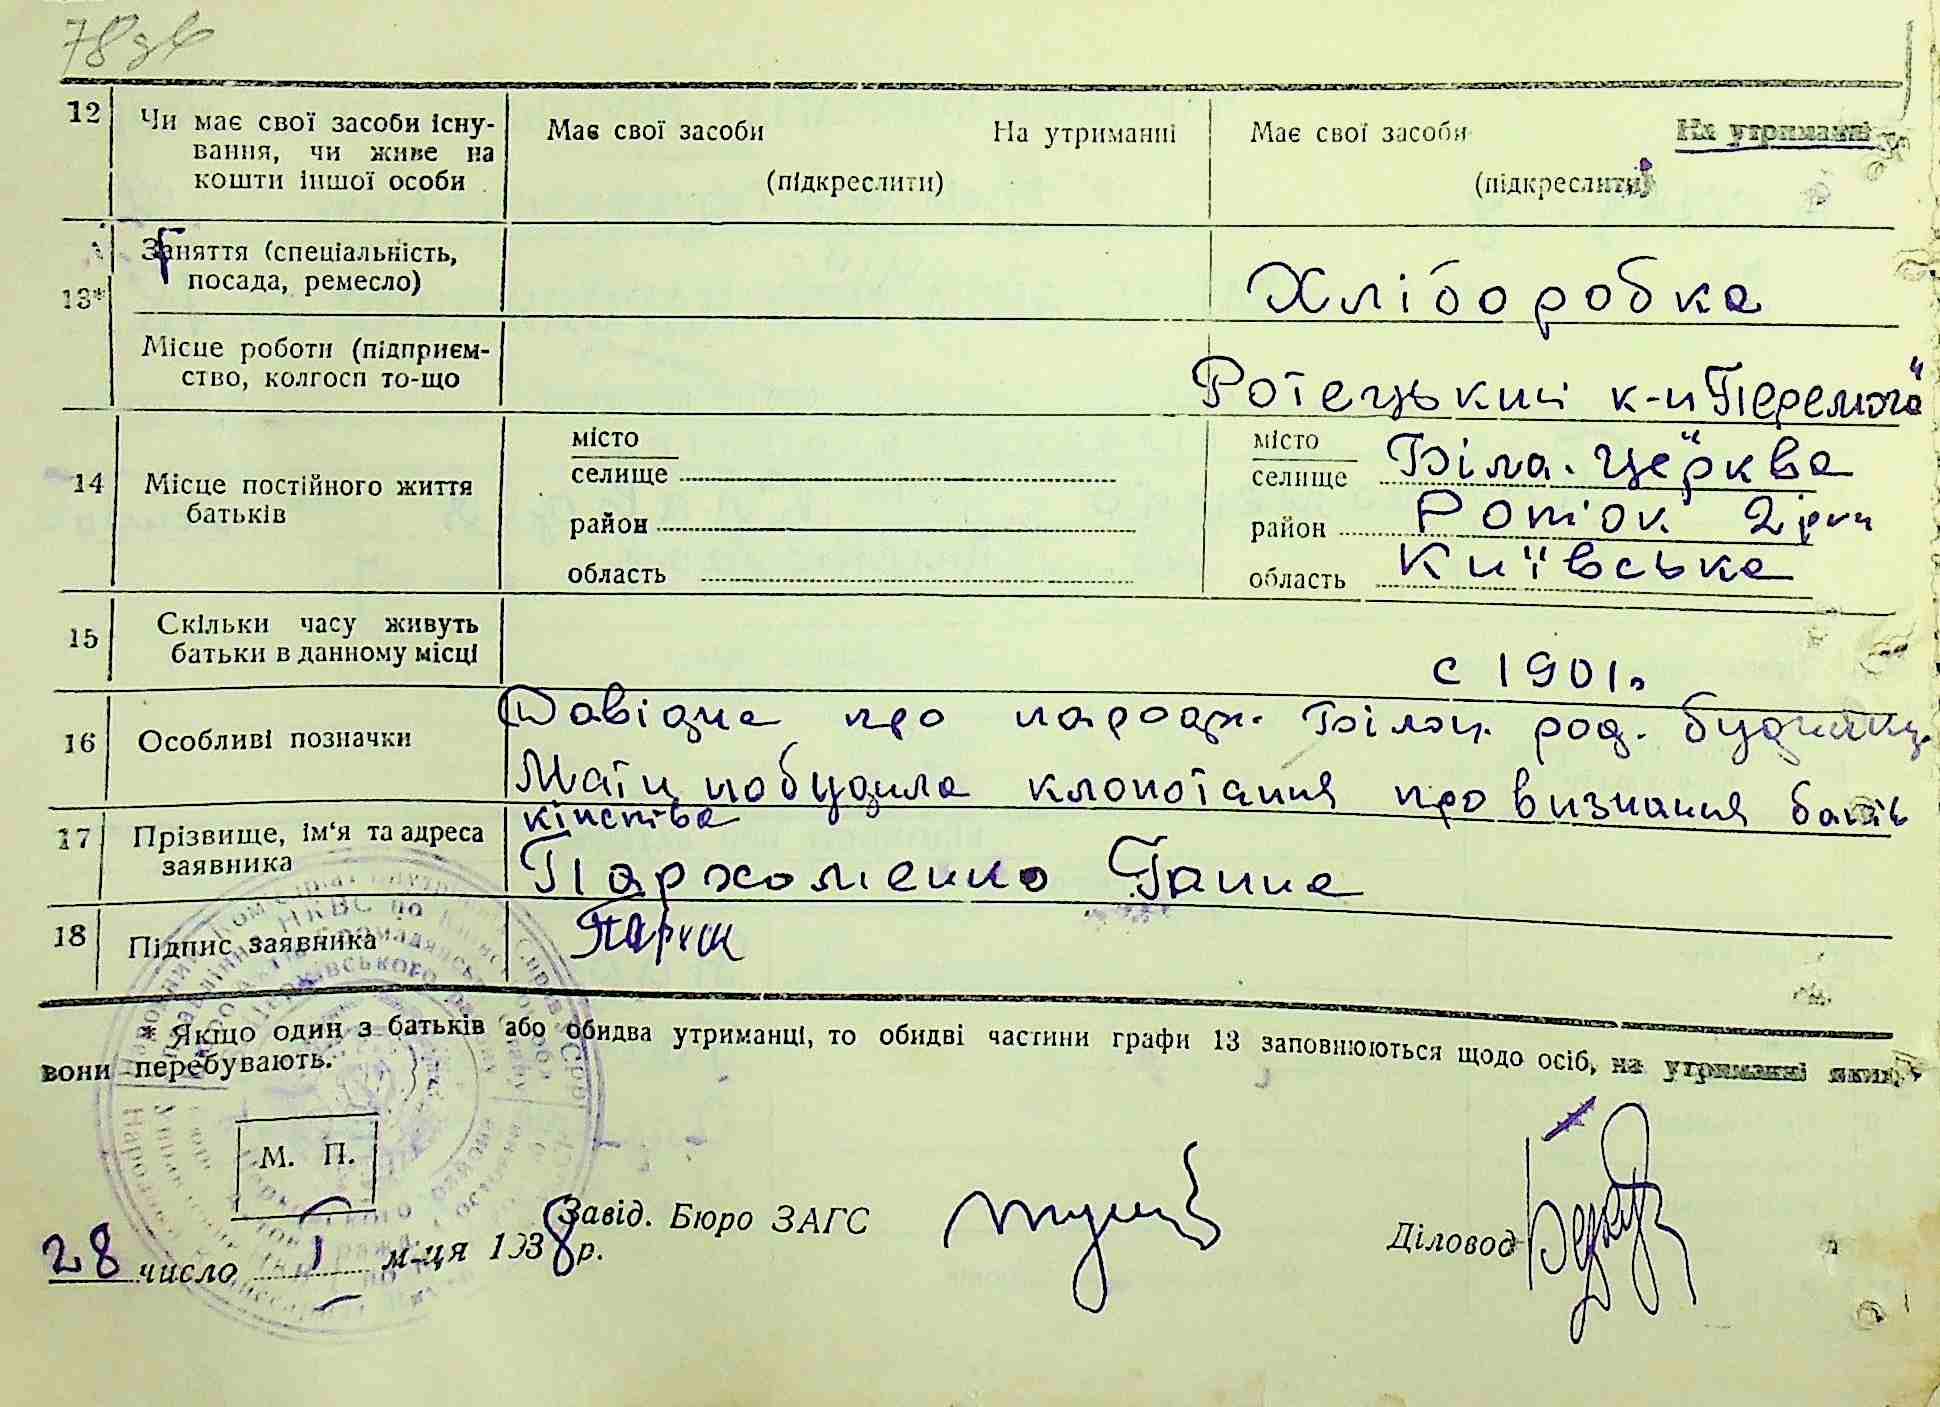 78
12 Чи має свої засоби існу-
вання, чи живе на
кошти іншої особи
Має свої засоби На утриманні
(підкреслити)
Має свої засоби На утриманні
(підкреслити)
13*
Заняття (спеціальність,
посада, ремесло)
Хліборобка
Місце роботи (підприєм-
ство, колгосп то-що
Ротецький к-и "Перемога"
14 Місце постійного життя
батьків
місто
селище
район
область
місто
селище Біла. Церква
район Роток 2
область Київська
15 Скільки часу живуть
батьки в данному місці
с 1901.
16 Особливі позначки
Довідка про народж. Білоц. род. будинку
Мати побудила клопотання про визнання батьк
кінства
17 Прізвище, ім'я та адреса
заявника
Пархоменко Ганна
18 Підпис заявника
Пархом
* Якщо один з батьків або обидва утриманці, то обидві частини графи 13 заповнюються щодо осіб, на утриманні яких
вони перебувають.
М. П.
28 число 1 м-ця 1938 р.
Завід. Бюро ЗАГС
Діловод